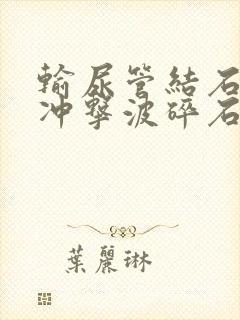 輸尿管結石
冲擊波碎石
葉麗琳